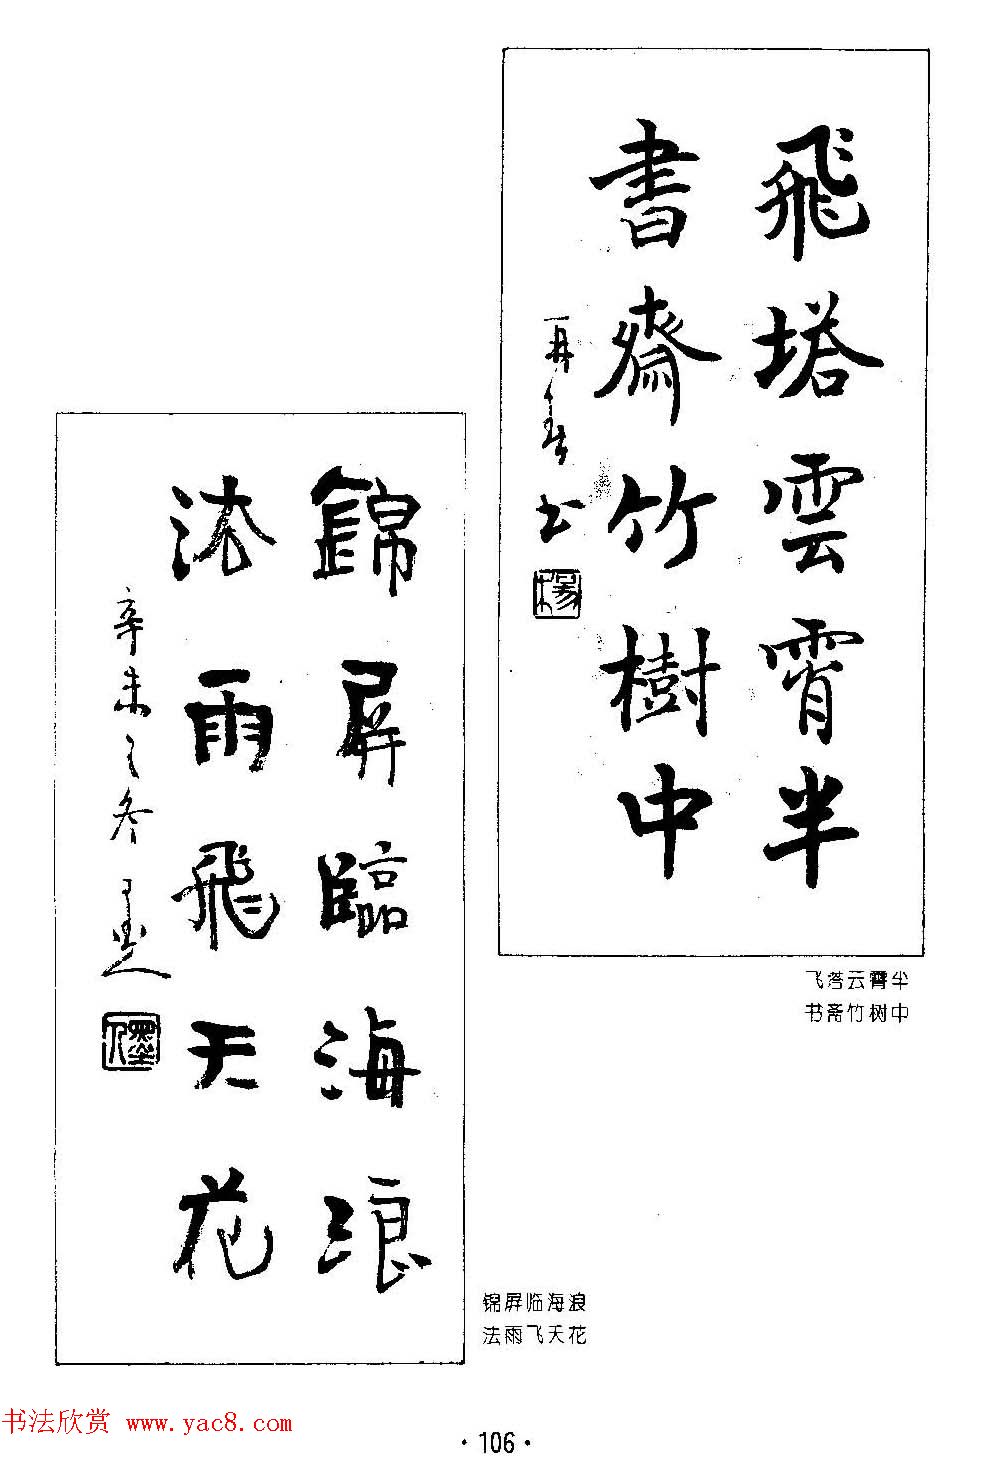 飛塔雲霄半
書齋竹樹中
再春书
楊
飞塔云霄半
书斋竹树中
錦屏臨海浪
法雨飛天花
辛未之冬
墨人
锦屏临海浪
法雨飞天花
书法欣赏 www.yac8.com
·106·